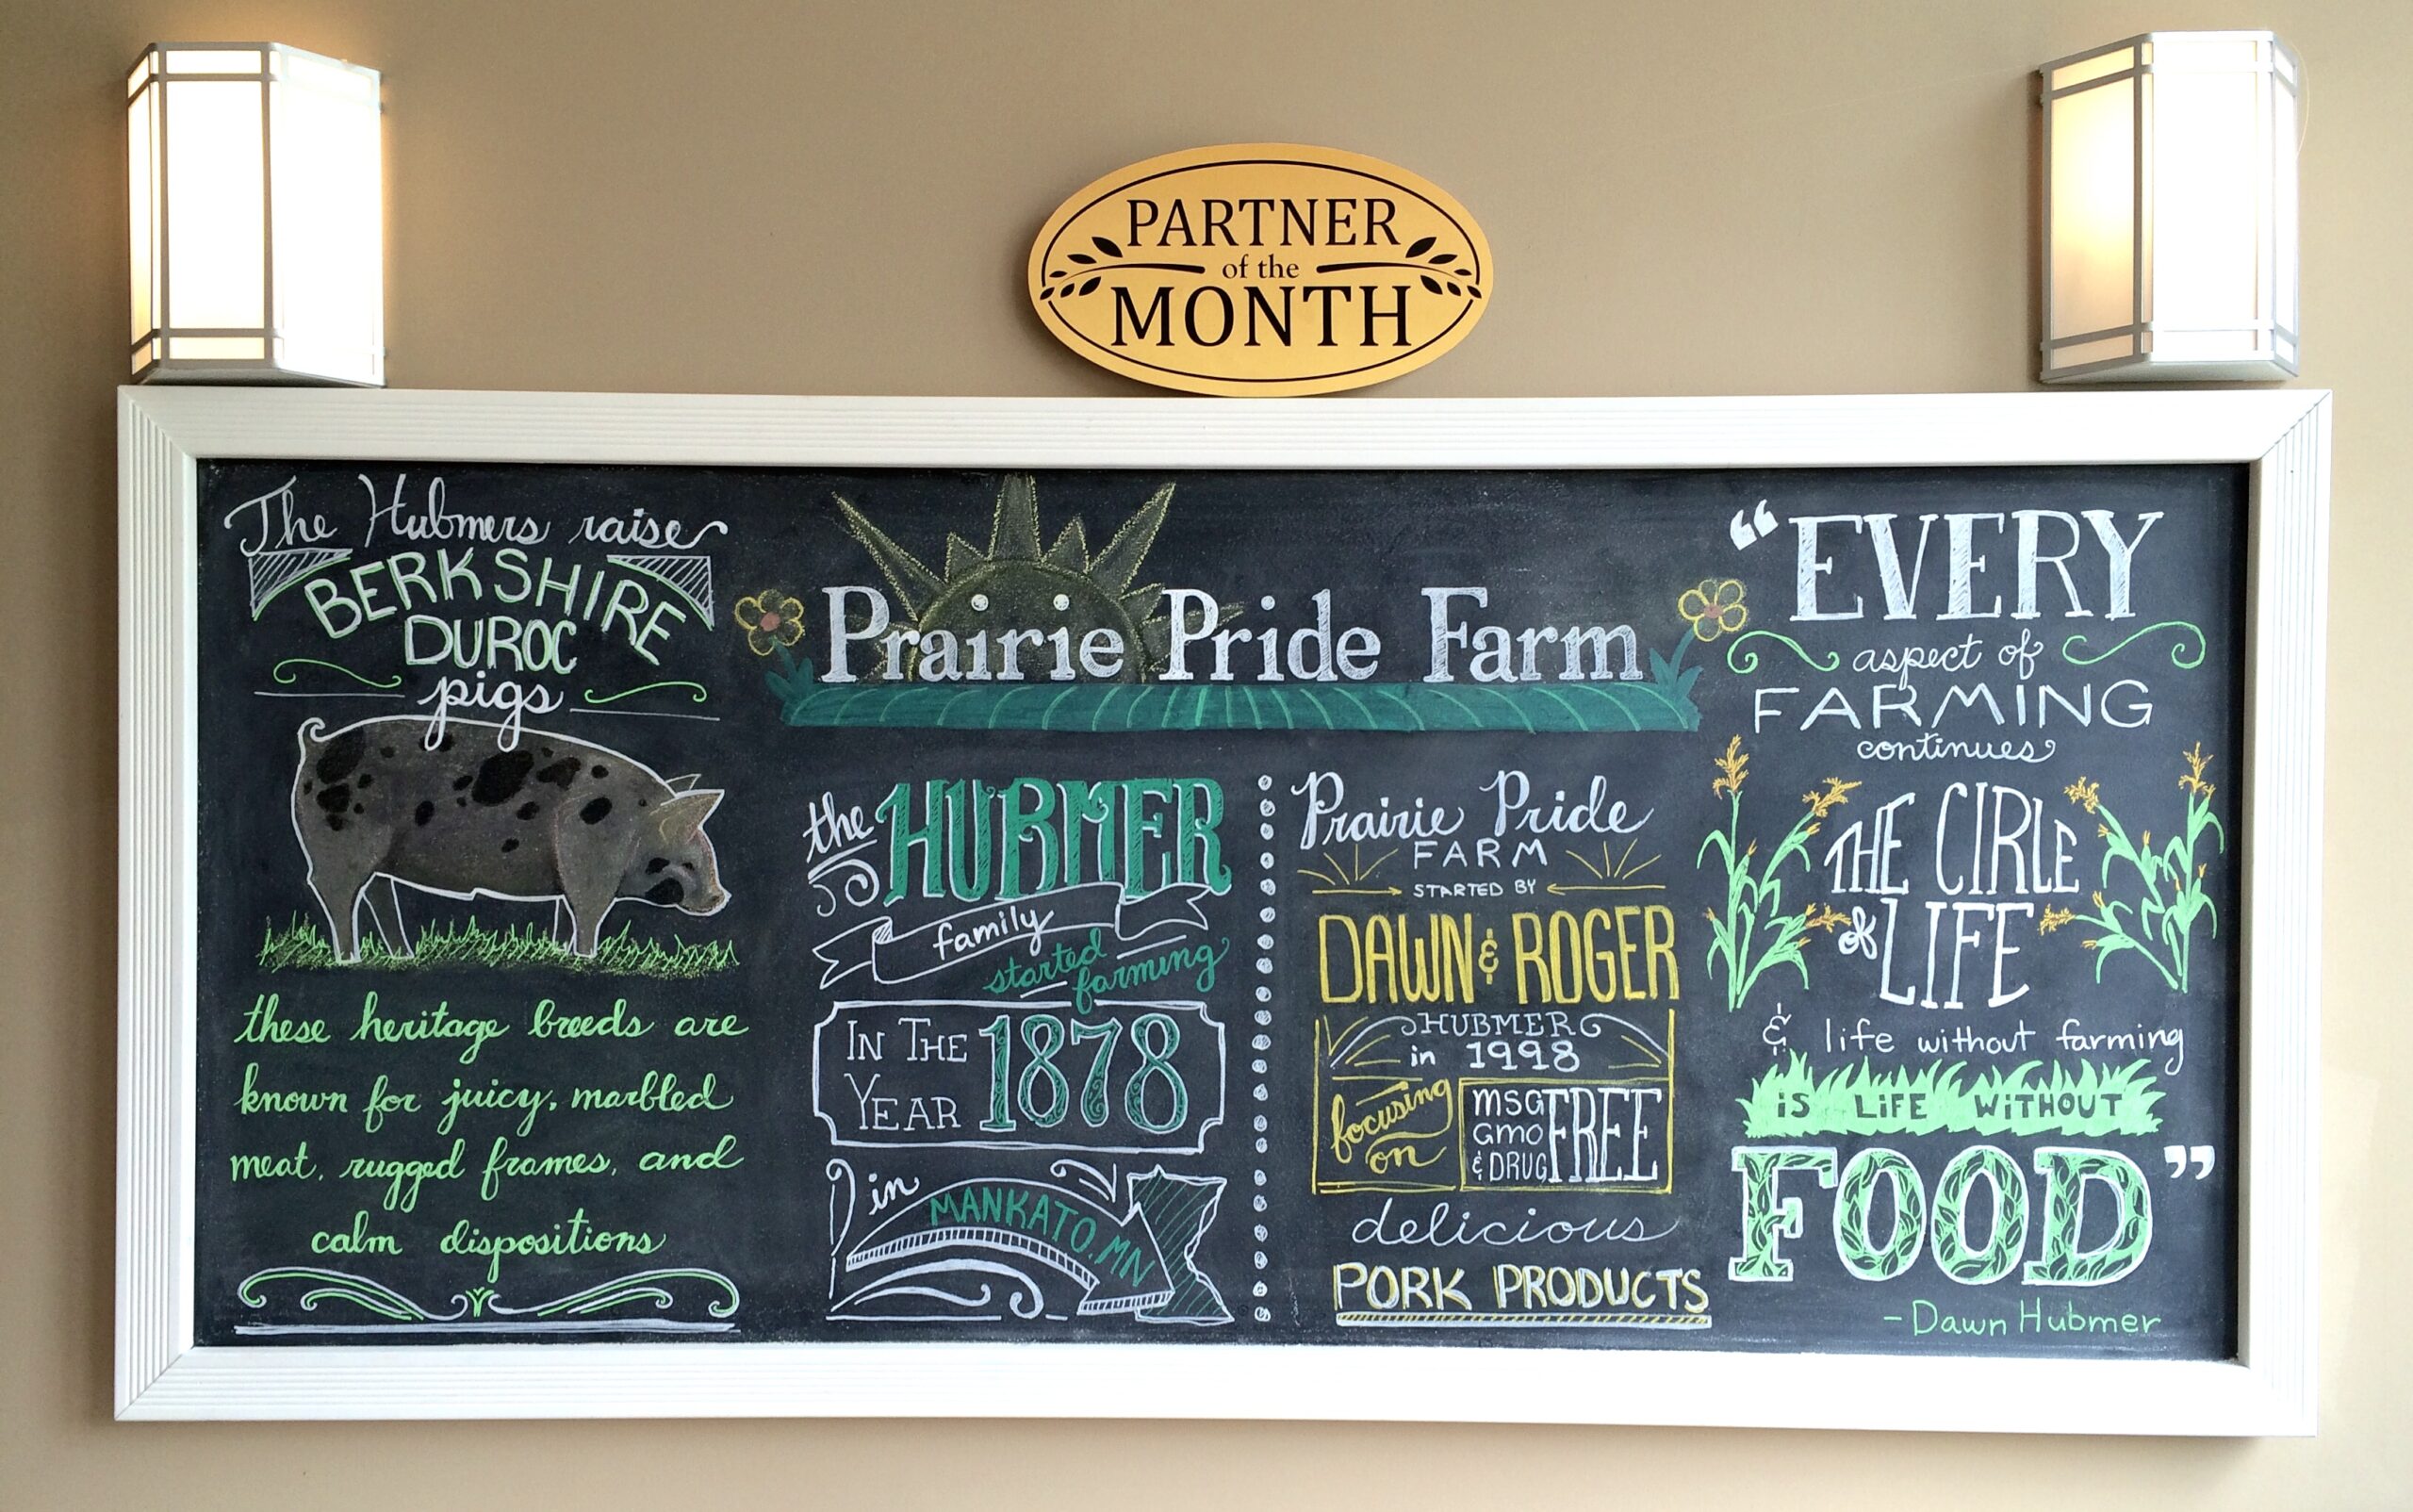 PARTNER
of the
MONTH
The Hubmers raise
BERKSHIRE
DUROC
pigs
these heritage breeds are
known for juicy, marbled
meat, rugged frames, and
calm dispositions
Prairie Pride Farm
the HUBMER
family
started
farming
IN THE
YEAR
1878
in
MANKATO, MN
Prairie Pride
FARM
STARTED BY
DAWN & ROGER
HUBMER
in 1998
focusing
on
MSG
GMO
& DRUG
FREE
delicious
PORK PRODUCTS
“EVERY
aspect of
FARMING
continues
THE CIRLE
of LIFE
& life without farming
iS LiFE WiTHOUT
FOOD”
- Dawn Hubmer